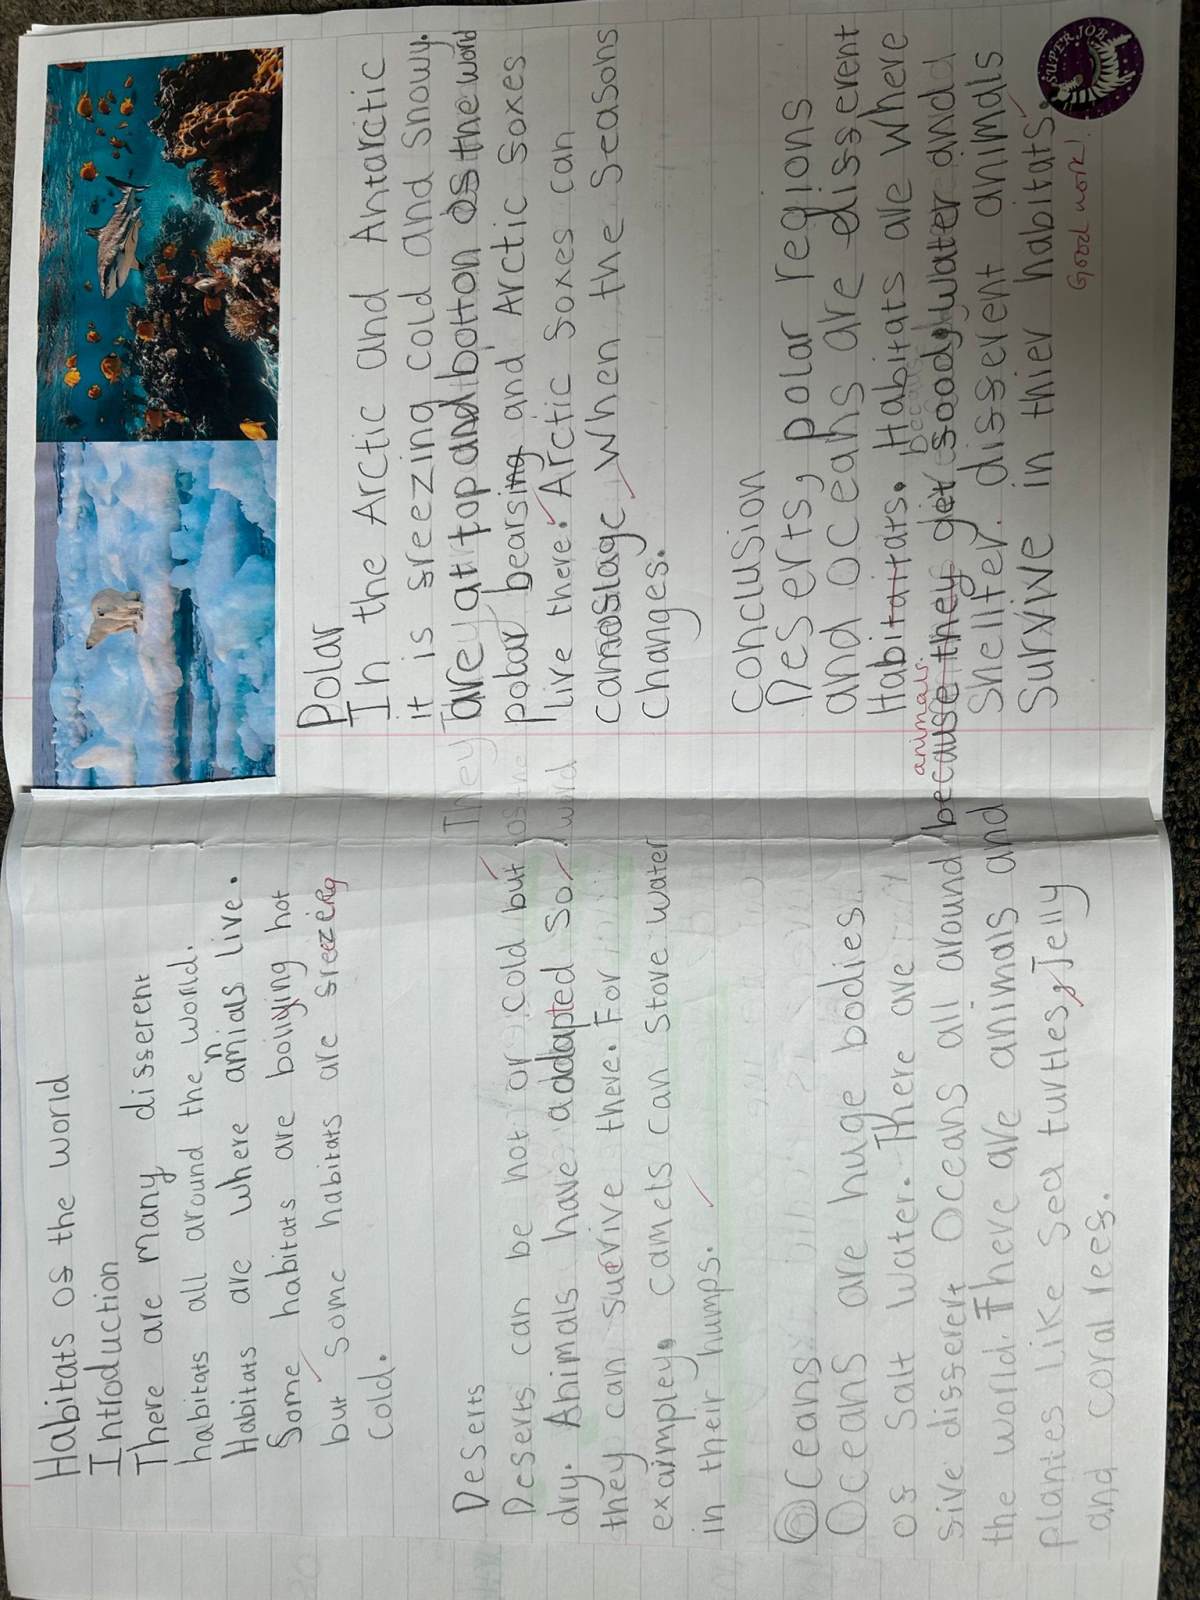 Habitats os the world
Introduction
There are many disserent
habitats all around the world.
Habitats are where amials live.
n
Some habitats are boilying hot
but some habitats are sreezéng
cold.
Deserts
Deserts can be hot or cold but
dry. Animals have adapted so
they can survive there. For
exaimpley, camels can store water
in their humps.
Oceans
Oceans are huge bodies
os salt water. There are
sive disserert Oceans all around
the world. There are animals and
plantes like sea turtles, Jelly
and coral rees.
Polar
In the Arctic and Antarctic
it is sreezing cold and snowy.
They are at top and botton os the world
polar bearsing and Arctic soxes
live there. Arctic soxes can
camoslage when the seasons
changes.
Conclusion
Deserts, polar regions
and oceans are disserent
Habitatrats. Habitats are where
animals
because they get sood, water and
Shellter. disserent animals
Survive in thier habitats.
SUPER JOB
Good work!